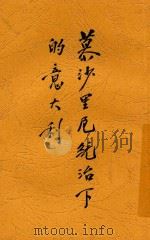 慕沙里尼統治下
的意大利